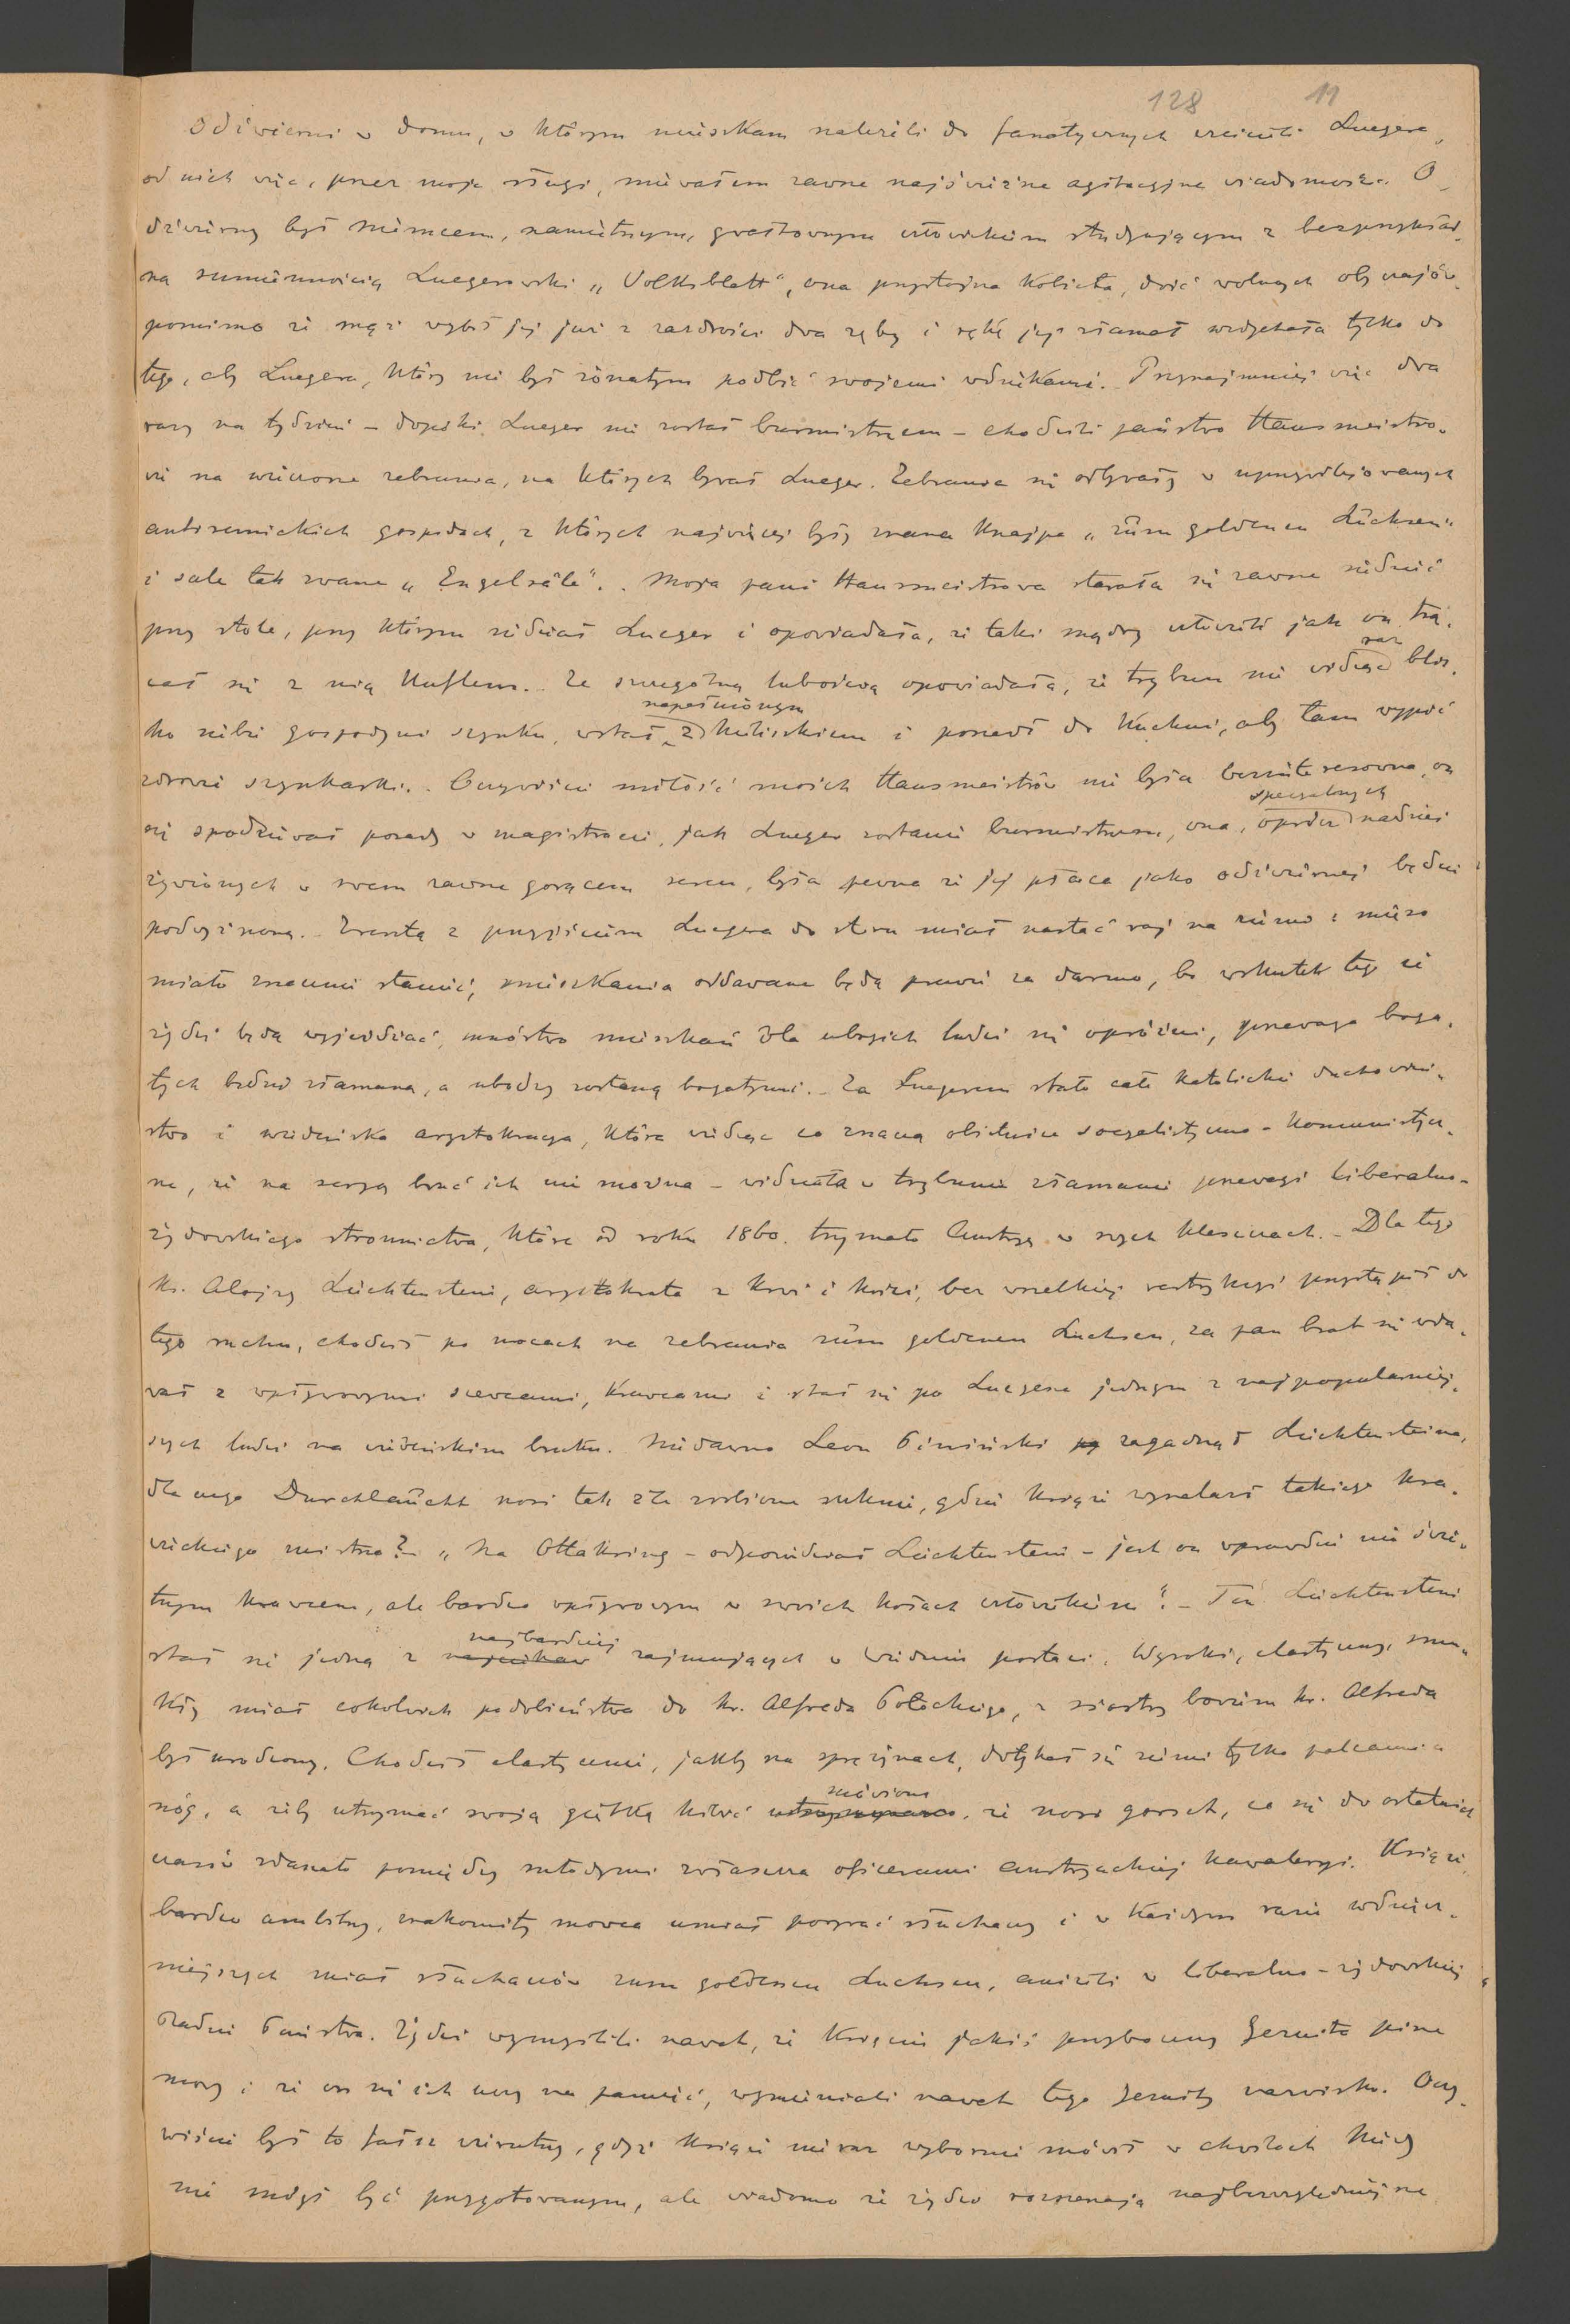 128 11
Odźwierni w domu, w którym mieszkam należeli do fanatycznych wielbicieli Luegera,
od nich więc, przez moje sługi, miewałem zawsze najświeższe agitacyjne wiadomości. O-
dźwierny był Niemcem, namiętnym, gwałtownym człowiekiem studyującym z bezprzykład-
ną sumiennością Luegerowski „Volksblatt", ona przystojna kobieta, dość wolnych obyczajów
pomimo że mąż wybił jej już z zazdrości dwa zęby i rękę jej złamał wzdychała tylko do
tego, aby Luegera, który nie był żonatym podbić swojemi wdziękami. Przynajmniej więc dwa
razy na tydzień – dopóki Lueger nie został burmistrzem – chodzili państwo Hausmeistro-
wie na wieczorne zebrania, na których bywał Lueger. Zebrania się odbywały w uprzywilejowanych
antisemickich gospodach, z których najwięcej była znana knajpa „zum goldenen Luchsen"
i sale tak zwane „Engelsäle". Moja pani Hausmeistrowa starała się zawsze siedzieć
przy stole, przy którym siedział Lueger i opowiadała, że taki mądry człowiek jak on trą-
cał się z nią kuflem. Ze szczególną lubością opowiadała, że trybun nie widząc raz blis-
ko siebie gospodyni szynku, wstał z napełnionym kieliszkiem i poszedł do kuchni, aby tam wypić
zdrowie szynkarki. Oczywiście miłość moich Hausmeistrów nie była bezinteresowna, on
się spodziewał posady w magistracie, jak Lueger zostanie burmistrzem, ona, oprócz specyalnych nadziei
żywionych w swem zawsze gorącem sercu, była pewna że jej płaca jako odźwiernej będzie
podwyższona. Zresztą z przyjściem Luegera do steru miał nastać raj na ziemi i mięso
miało znacznie stanieć, mieszkania oddawane będą prawie za darmo, bo wskutek tego że
żydzi będą wyjeżdżać, mnóstwo mieszkań dla ubogich ludzi się opróżni, przewaga boga-
tych będzie złamana, a ubodzy zostaną bogatymi. Za Luegerem stało całe katolickie duchowień-
stwo i wiedeńska arystokracya, która widząc co znaczą obietnice socyalistyczno-komunistycz-
ne, że na seryo brać ich nie można – widziała w trybunie złamanie przewagi liberalno-
żydowskiego stronnictwa, które od roku 1860. trzymało Austryę w swych kleszczach. Dla tego
ks. Alojzy Liechtenstein, arystokrata z krwi i kości, bez wszelkiej restrykcyi przystąpił do
tego ruchu, chodził po nocach na zebrania zum goldenen Luchsen, za pan brat się wda-
wał z wpływowymi szewcami, krawcami i stał się po Luegerze jednym z najpopularniej-
szych ludzi na wiedeńskim bruku. Niedawno Leon Piniński zagadnął Liechtensteina,
dla czego Durchlaucht nosi tak źle zrobione suknie, gdzie książe wynalazł takiego kra-
wieckiego mistrza? „Na Ottakring – odpowiedział Liechtenstein – jest on wprawdzie nie świe-
tnym krawcem, ale bardzo wpływowym w swoich kołach człowiekiem". – Ten Liechtenstein
stał się jedną z najbardziej zajmujących w Wiedniu postaci. Wysoki, elastyczny, smu-
kły miał cokolwiek podobieństwa do hr. Alfreda Potockiego, z siostry bowiem hr. Alfreda
był urodzony. Chodził elastycznie, jakby na sprężynach, dotykał się ziemi tylko palcami u
nóg, a żeby utrzymać swoją giętką kibić mówiono, że nosi gorset, co się do ostatnich
czasów zdarzało pomiędzy młodymi zwłaszcza oficerami austryackiej kawaleryi. Książe,
bardzo ambitny, znakomity mowca umiał porywać słuchaczy i w każdym razie wdzięcz-
niejszych miał słuchaczów zum goldenen Luchsen, aniżeli w liberalno-żydowskiej
Radzie Państwa. Żydzi wymyślili nawet, że księciu jakiś przyboczny Jezuita pisze
mowy i że on się ich uczy na pamięć, wymieniali nawet tego Jezuity nazwisko. Oczy-
wiście był to fałsz wierutny, gdyż książe nieraz wybornie mówił w chwilach kiedy
nie mógł być przygotowanym, ale wiadomo że żydzi rozsiewają najbezwzględniejsze